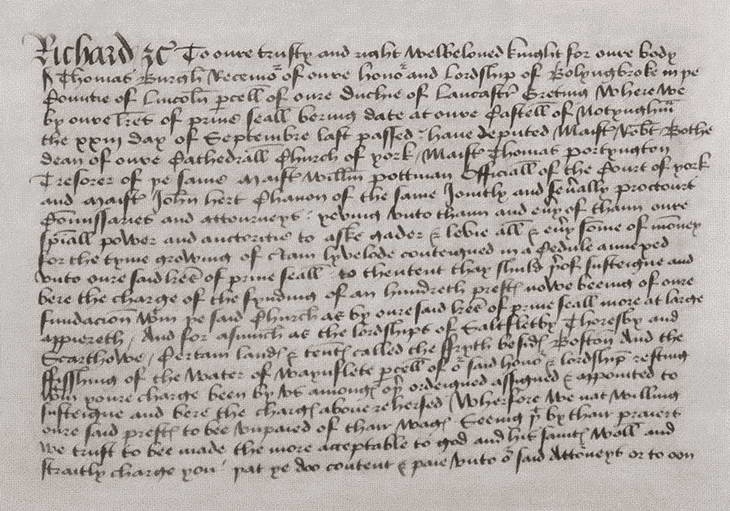 Richard &c To oure trusty and right welbeloved knight for oure body
S Thomas Burgh Receivor of oure honor and lordship of Bolyngbroke in ye
Countie of Lincoln pcell of oure duchie of Lancastr Greting Where we
by oure lres of prive seall bering date at oure Castell of Notyngham
the xxiii day of Septembre last passed / have deputed Maistr Robt Bothe
dean of oure Cathedrall Church of york / Maistr Thomas portyngton
Tresorer of ye same Maistr Willm pottman Officiall of the Court of york
and Maistr John hert Chanon of the same Jointly and severally procours
Comissaries and attourneys / yeving unto thaim and evy of thaim oure
spiall power and auctoritie to aske gader & levie all & evy some of money
for the tyme growing of ctain lyvelode conteigned in a Cedule annexed
unto oure said lres of prive seall / to thentent thay shuld yrof susteigne and
bere the charge of the fynding of an hundreth prests nowe beeing of oure
fundacion wtin ye said Church as by oure said lres of prive seall more at large
appiereth / And for asmuch as the lordships of Saltfletby Thoresby and
Scarthowe / Certain lands & tents called the ffryth beside Boston And the
ffisshing of the water of Waynflete pcell of or said honor & lordship resting
wtin youre charge been by us amongs or ordeigned assigned & appointed to
susteigne and bere the charges above rehersed / Wherfore We nat willing
oure said prests to bee unpaied of thair wages Seeing yt by thair praiers
we trust to bee made the more acceptable to god and his saints Woll and
straitly charge you / yat ye doo content & paie unto or said Attorneys or to oon